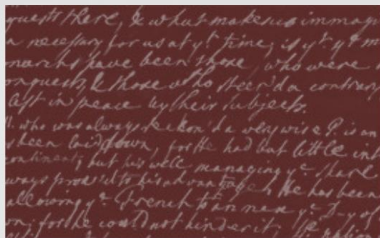 quests there, & what makes us immagin
a necessary for us at yt time, is yt yt m
monarchs have been those who were
conquests, & those who steer'd a contrary
left in peace by their subjects.
who was always reckon'd a very wise P. is an
been laid down, for He had but little int
continent, but his well managing ye share
ways prov'd to his advantage, He has been
allowing ye French to an man ye D-y of
for he could not hinder it,